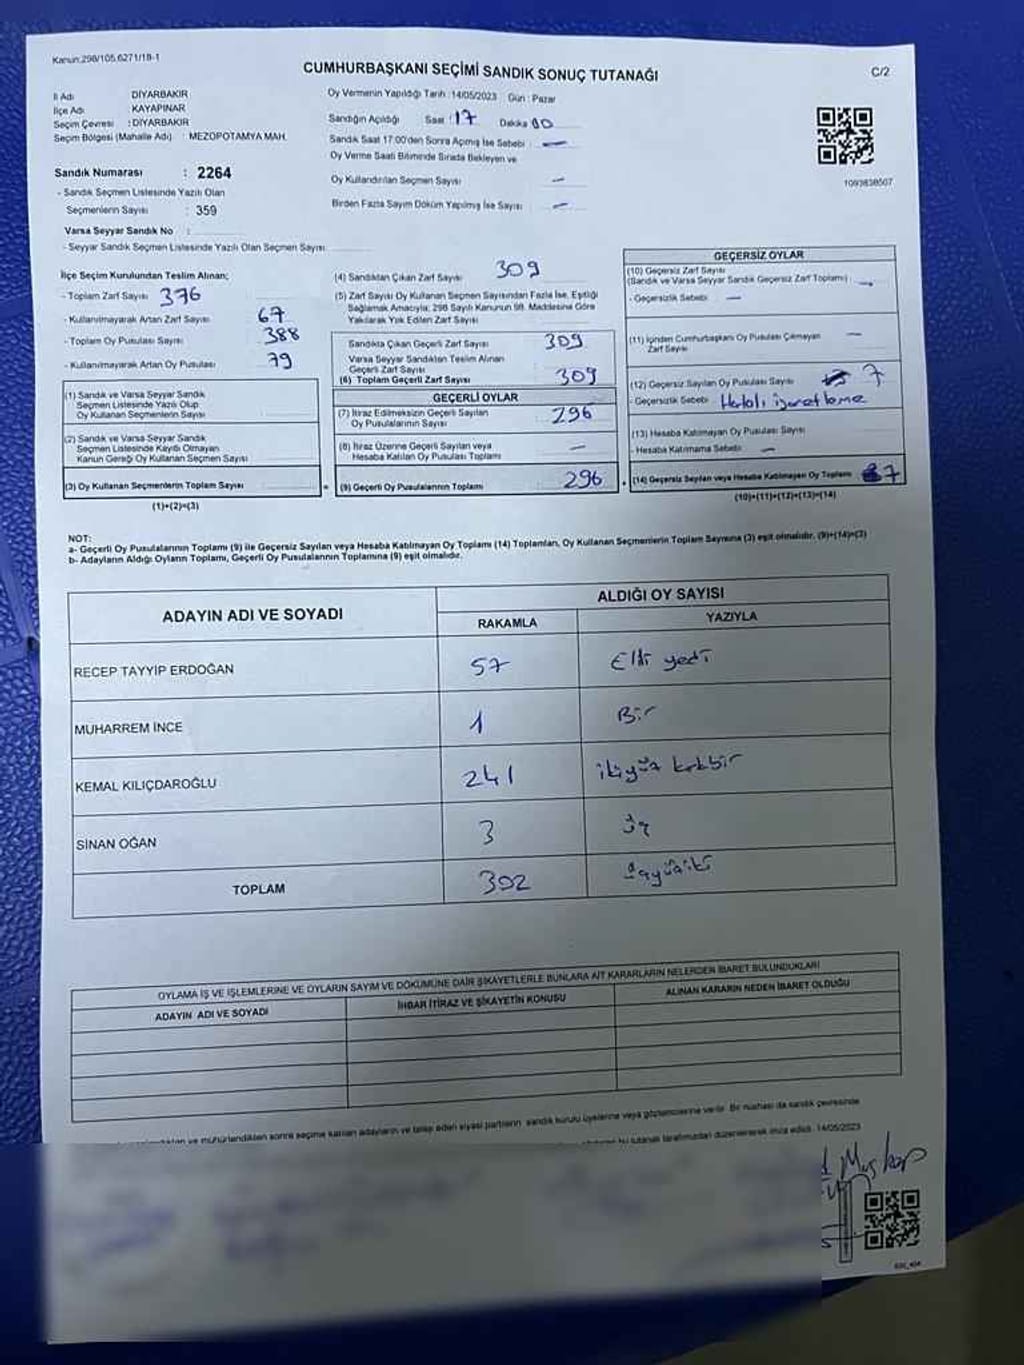 Kanun:298/105,6271/18-1
CUMHURBAŞKANI SEÇİMİ SANDIK SONUÇ TUTANAĞI
C/2
İl Adı DİYARBAKIR
İlçe Adı KAYAPINAR
Seçim Çevresi : DİYARBAKIR
Seçim Bölgesi (Mahalle Adı) : MEZOPOTAMYA MAH.
Sandık Numarası : 2264
- Sandık Seçmen Listesinde Yazılı Olan
Seçmenlerin Sayısı : 359
Varsa Seyyar Sandık No :
- Seyyar Sandık Seçmen Listesinde Yazılı Olan Seçmen Sayısı
Oy Vermenin Yapıldığı Tarih : 14/05/2023 Gün : Pazar
Sandığın Açıldığı Saat : 17 Dakika 00
Sandık Saat 17.00'den Sonra Açılmış İse Sebebi : —
Oy Verme Saati Bitiminde Sırada Bekleyen ve
Oy Kullandırılan Seçmen Sayısı —
Birden Fazla Sayım Döküm Yapılmış İse Sayısı —
1093838507
İlçe Seçim Kurulundan Teslim Alınan;
- Toplam Zarf Sayısı 376
- Kullanılmayarak Artan Zarf Sayısı 67
- Toplam Oy Pusulası Sayısı 388
- Kullanılmayarak Artan Oy Pusulası 79
(1) Sandık ve Varsa Seyyar Sandık
Seçmen Listesinde Yazılı Olup
Oy Kullanan Seçmenlerin Sayısı
(2) Sandık ve Varsa Seyyar Sandık
Seçmen Listesinde Kayıtlı Olmayan
Kanun Gereği Oy Kullanan Seçmen Sayısı
(3) Oy Kullanan Seçmenlerin Toplam Sayısı
(1)+(2)=(3)
(4) Sandıktan Çıkan Zarf Sayısı 309
(5) Zarf Sayısı Oy Kullanan Seçmen Sayısından Fazla İse, Eşitliği
Sağlamak Amacıyla; 298 Sayılı Kanunun 98. Maddesine Göre
Yakılarak Yok Edilen Zarf Sayısı
Sandıkta Çıkan Geçerli Zarf Sayısı 309
Varsa Seyyar Sandıktan Teslim Alınan
Geçerli Zarf Sayısı
(6) Toplam Geçerli Zarf Sayısı 309
GEÇERLİ OYLAR
(7) İtiraz Edilmeksizin Geçerli Sayılan
Oy Pusulalarının Sayısı 296
(8) İtiraz Üzerine Geçerli Sayılan veya
Hesaba Katılan Oy Pusulası Toplamı —
= (9) Geçerli Oy Pusulalarının Toplamı 296
GEÇERSİZ OYLAR
(10) Geçersiz Zarf Sayısı
(Sandık ve Varsa Seyyar Sandık Geçersiz Zarf Toplamı) —
- Geçersizlik Sebebi —
(11) İçinden Cumhurbaşkanı Oy Pusulası Çıkmayan
Zarf Sayısı —
(12) Geçersiz Sayılan Oy Pusulası Sayısı 7
- Geçersizlik Sebebi Hatalı işaretleme
(13) Hesaba Katılmayan Oy Pusulası Sayısı
- Hesaba Katılmama Sebebi —
+ (14) Geçersiz Sayılan veya Hesaba Katılmayan Oy Toplamı 7
(10)+(11)+(12)+(13)=(14)
NOT:
a- Geçerli Oy Pusulalarının Toplamı (9) ile Geçersiz Sayılan veya Hesaba Katılmayan Oy Toplamı (14) Toplamları, Oy Kullanan Seçmenlerin Toplam Sayısına (3) eşit olmalıdır. (9)+(14)=(3)
b- Adayların Aldığı Oyların Toplamı, Geçerli Oy Pusulalarının Toplamına (9) eşit olmalıdır.
ADAYIN ADI VE SOYADI ALDIĞI OY SAYISI
RAKAMLA YAZIYLA
RECEP TAYYİP ERDOĞAN 57 Elli yedi
MUHARREM İNCE 1 Bir
KEMAL KILIÇDAROĞLU 241 ikiyüz kırkbir
SİNAN OĞAN 3 üç
TOPLAM 302 üçyüziki
OYLAMA İŞ VE İŞLEMLERİNE VE OYLARIN SAYIM VE DÖKÜMÜNE DAİR ŞİKAYETLERLE BUNLARA AİT KARARLARIN NELERDEN İBARET BULUNDUKLARI
ADAYIN ADI VE SOYADI İHBAR İTİRAZ VE ŞİKAYETİN KONUSU ALINAN KARARIN NEDEN İBARET OLDUĞU
ve mühürlendikten sonra seçime katılan adayların ve talep eden siyasi partilerin sandık kurulu üyelerine veya gözlemcilerine verilir. Bir nüshası da sandık çevresinde
bu tutanak tarafımızdan düzenlenerek imza edildi. 14/05/2023